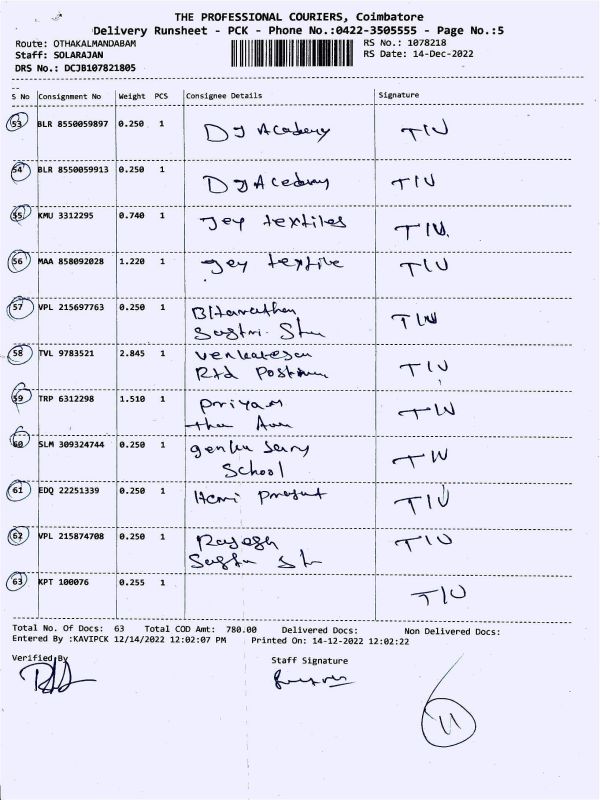 THE PROFESSIONAL COURIERS, Coimbatore
Delivery Runsheet - PCK - Phone No.:0422-3505555 - Page No.:5
Route: OTHAKALMANDABAM RS No.: 1078218
Staff: SOLARAJAN RS Date: 14-Dec-2022
DRS No.: DCJB107821805
S No Consignment No Weight PCS Consignee Details Signature
53 BLR 8550059897 0.250 1 DJ Academy TIU
54 BLR 8550059913 0.250 1 DJ Acedmy TIU
55 KMU 3312295 0.740 1 Jey textiles TIU
56 MAA 858092028 1.220 1 Jey textile TIU
57 VPL 215697763 0.250 1 TIU
58 TVL 9783521 2.845 1 Venkatesan TIU
Rtd
59 TRP 6312298 1.510 1 Priyam TIU
60 SLM 309324744 0.250 1 TIU
School
61 EDQ 22251339 0.250 1 Hari TIU
62 VPL 215874708 0.250 1 Rajesh TIU
63 KPT 100076 0.255 1 TIU
Total No. Of Docs: 63 Total COD Amt: 780.00 Delivered Docs: Non Delivered Docs:
Entered By :KAVIPCK 12/14/2022 12:02:07 PM Printed On: 14-12-2022 12:02:22
Verified By Staff Signature
11